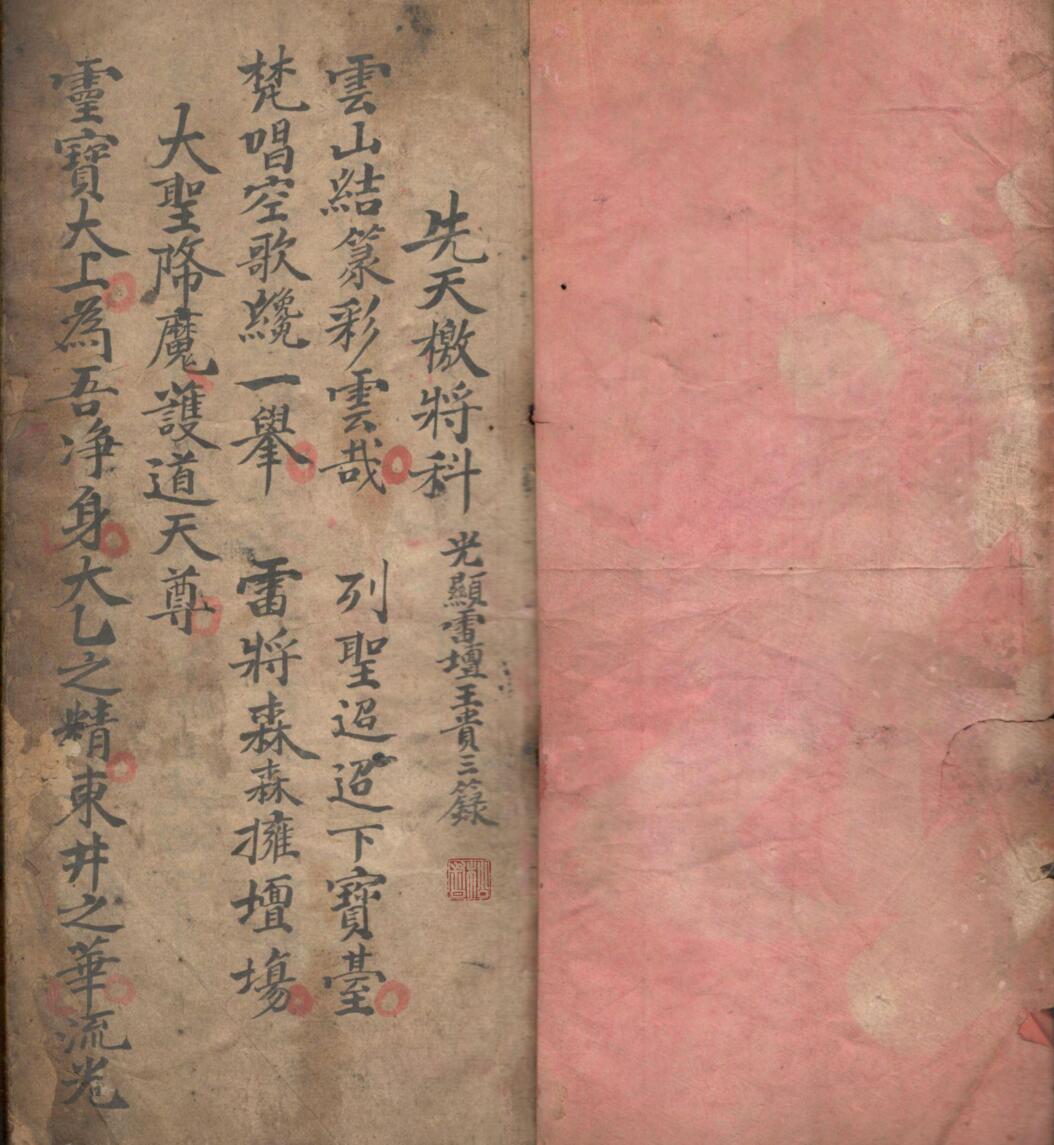 先天檄將科 光顯雷壇王貴三籙
雲山結篆彩雲哉 列聖迢迢下寶臺
梵唱空歌纔一舉 雷將森森擁壇塲
大聖降魔護道天尊
靈寶大上為吾净身大乙之精東井之華流光